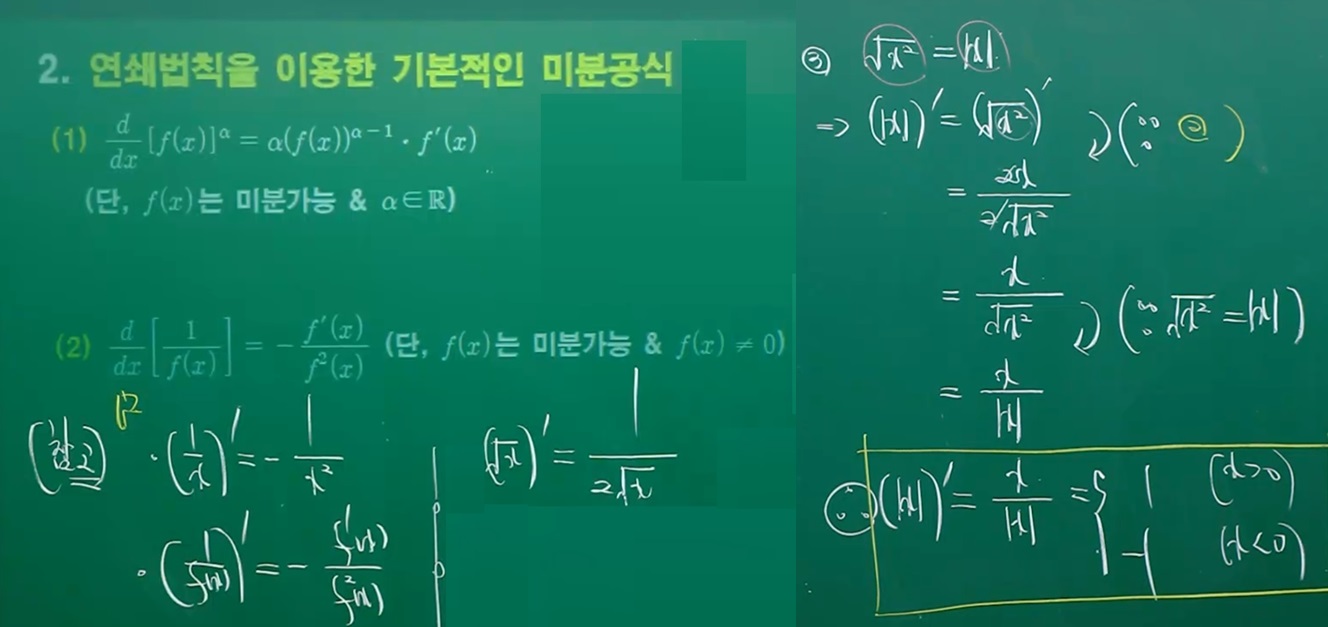 2. 연쇄법칙을 이용한 기본적인 미분공식
(1) d/dx [f(x)]^α = α(f(x))^(α−1) · f′(x)
(단, f(x)는 미분가능 & α∈ℝ)
(2) d/dx [1/f(x)] = − f′(x)/f²(x) (단, f(x)는 미분가능 & f(x) ≠ 0)
· (1/x)′ = − 1/x²
(√x)′ = 1/(2√x)
· (1/f(x))′ = − f′(x)/f²(x)
③ √x² = |x|
⇒ (|x|)′ = (√x²)′ (∵ ②)
= 2x/(2√x²)
= x/√x² (∵ √x² = |x|)
= x/|x|
∴ (|x|)′ = x/|x| = { 1 (x>0)
−1 (x<0)